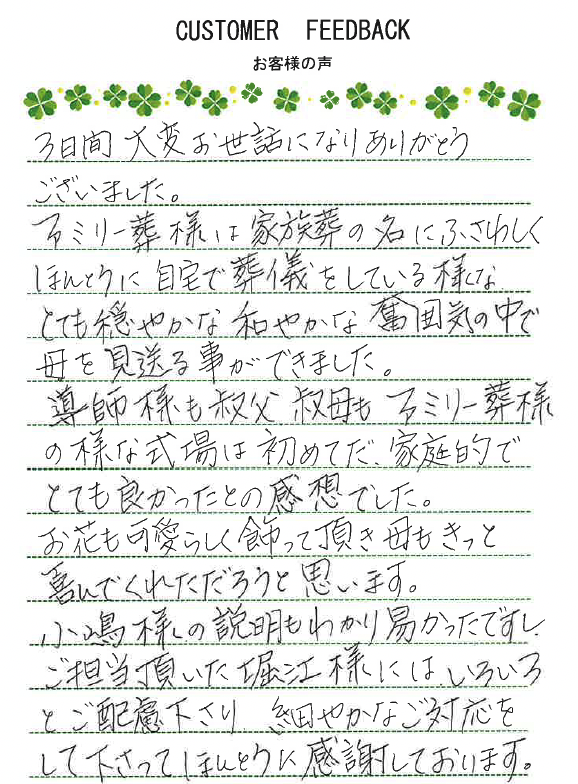 CUSTOMER FEEDBACK
お客様の声
3日間 大変お世話になりありがとう
ございました。
ファミリー葬様は家族葬の名にふさわしく
ほんとうに自宅で葬儀をしている様な
とても穏やかな和やかな奮囲気の中で
母を見送る事ができました。
導師様も叔父 叔母も ファミリー葬様
の様な式場は初めてだ、家庭的で
とても良かったとの感想でした。
お花も可愛らしく飾って頂き母もきっと
喜んでくれただろうと思います。
小嶋様の説明もわかり易かったですし
ご担当頂いた堀江様にはいろいろ
とご配慮下さり 細やかなご対応を
して下さってほんとうに感謝しております。